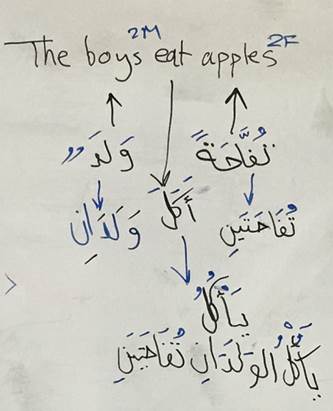 2M 2F
The boys eat apples
وَلَدٌ تُفَّاحَةً
أَكَلَ
وَلَدَانِ تُفَاحَتَينِ
يَأْكُلُ
يَأْكُلُ الوَلَدَانِ تُفَاحَتَينِ